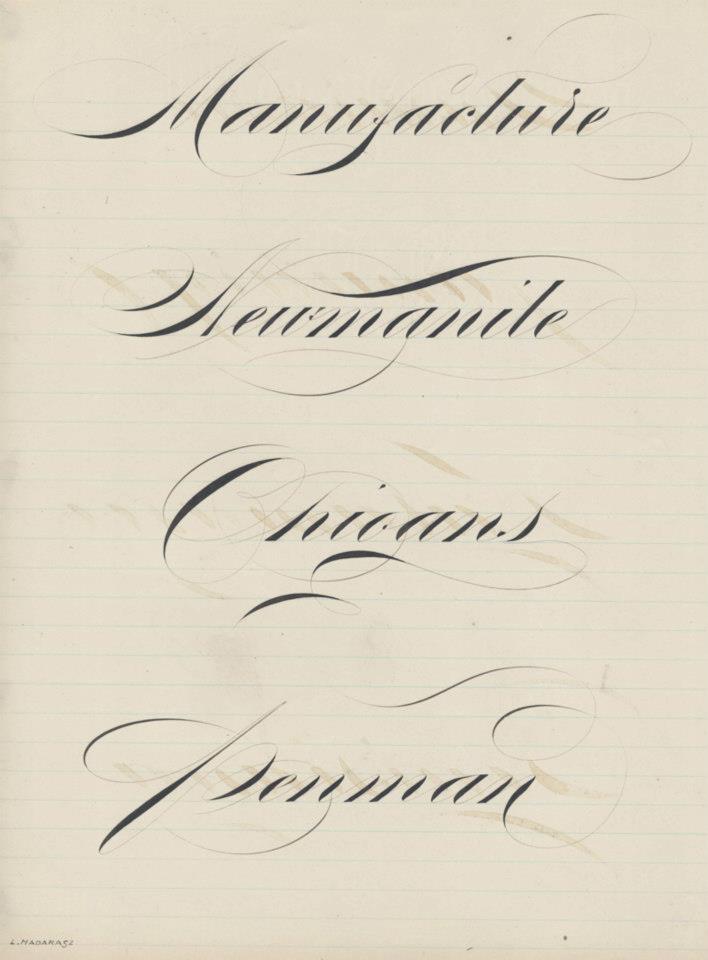 Manufacture
Newmanite
Penman
L. MADARASZ